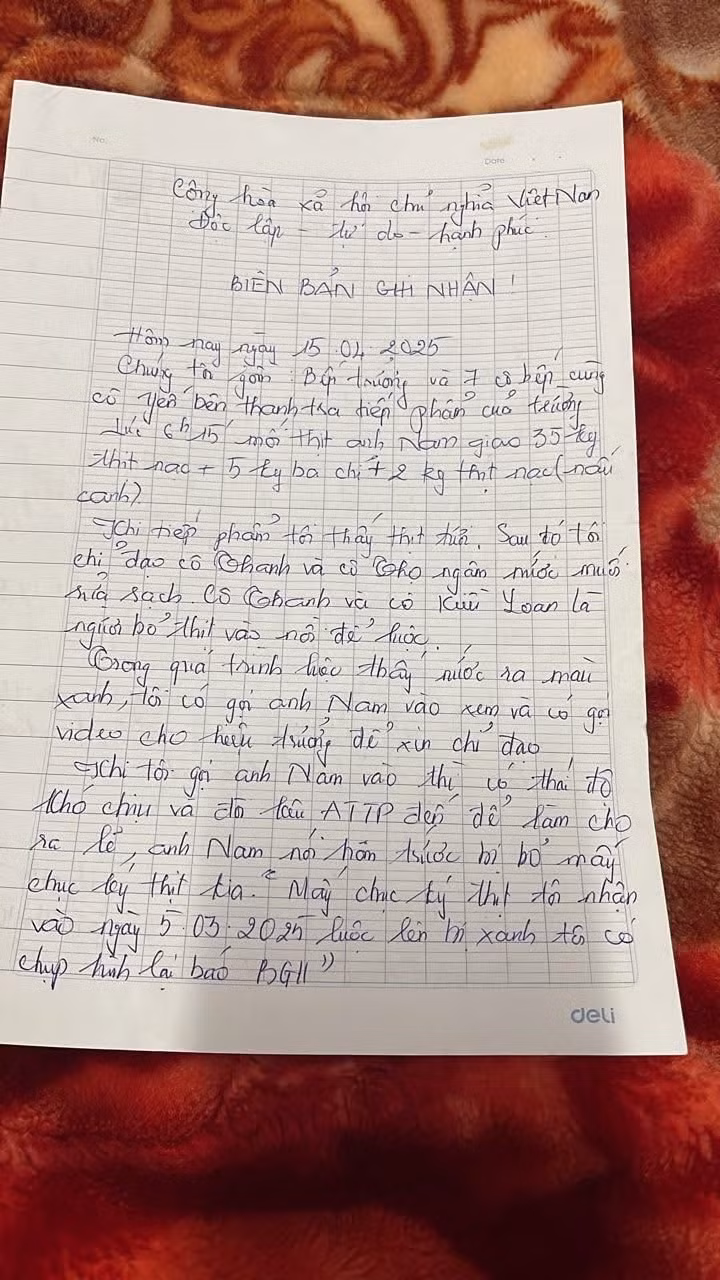 No.
Date
Công hòa xả hôi chủ nghĩa Việt Nam
Độc lập - tự do - hạnh phúc.
BIÊN BẢN GHI NHẬN !
Hôm nay ngày 15.04.2025
Chúng tôi gồm : Bếp trưởng và 7 cô bếp cùng
cô Yến bên thanh tra tiếp phẩm của trường
Lúc 6h15 mối thịt anh Nam giao 35 kg
thịt nạc + 5 kg ba chỉ + 2 kg thịt nạc (nấu
canh).
Khi tiếp phẩm tôi thấy thịt tươi. Sau đó tôi
chỉ đạo cô Thanh và cô Thơ ngâm nước muối
rửa sạch. Cô Thanh và cô Kiều Loan là
người bỏ thịt vào nồi để luộc.
Trong quá trình luộc thấy nước ra màu
xanh, tôi có gọi anh Nam vào xem và có gọi
video cho hiệu trưởng để xin chỉ đạo
Khi tôi gọi anh Nam vào thì có thái độ
khó chịu và đòi kêu ATTP đến để làm cho
ra lẽ, anh Nam nói hôm trước bị bỏ mấy
chục ký thịt kia. "Mấy chục ký thịt tôi nhận
vào ngày 5.03.2025 luộc lên bị xanh tôi có
chụp hình lại báo BGH"
deli